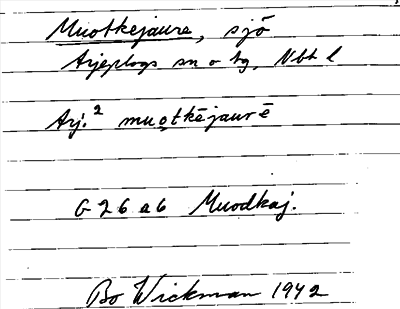 Muotkejaure, sjö
Arjeplogs sn o tg, Nbt l
Arj.² muo̭tkējaurē
G 26 a 6 Muodkaj.
Bo Wickman 1942